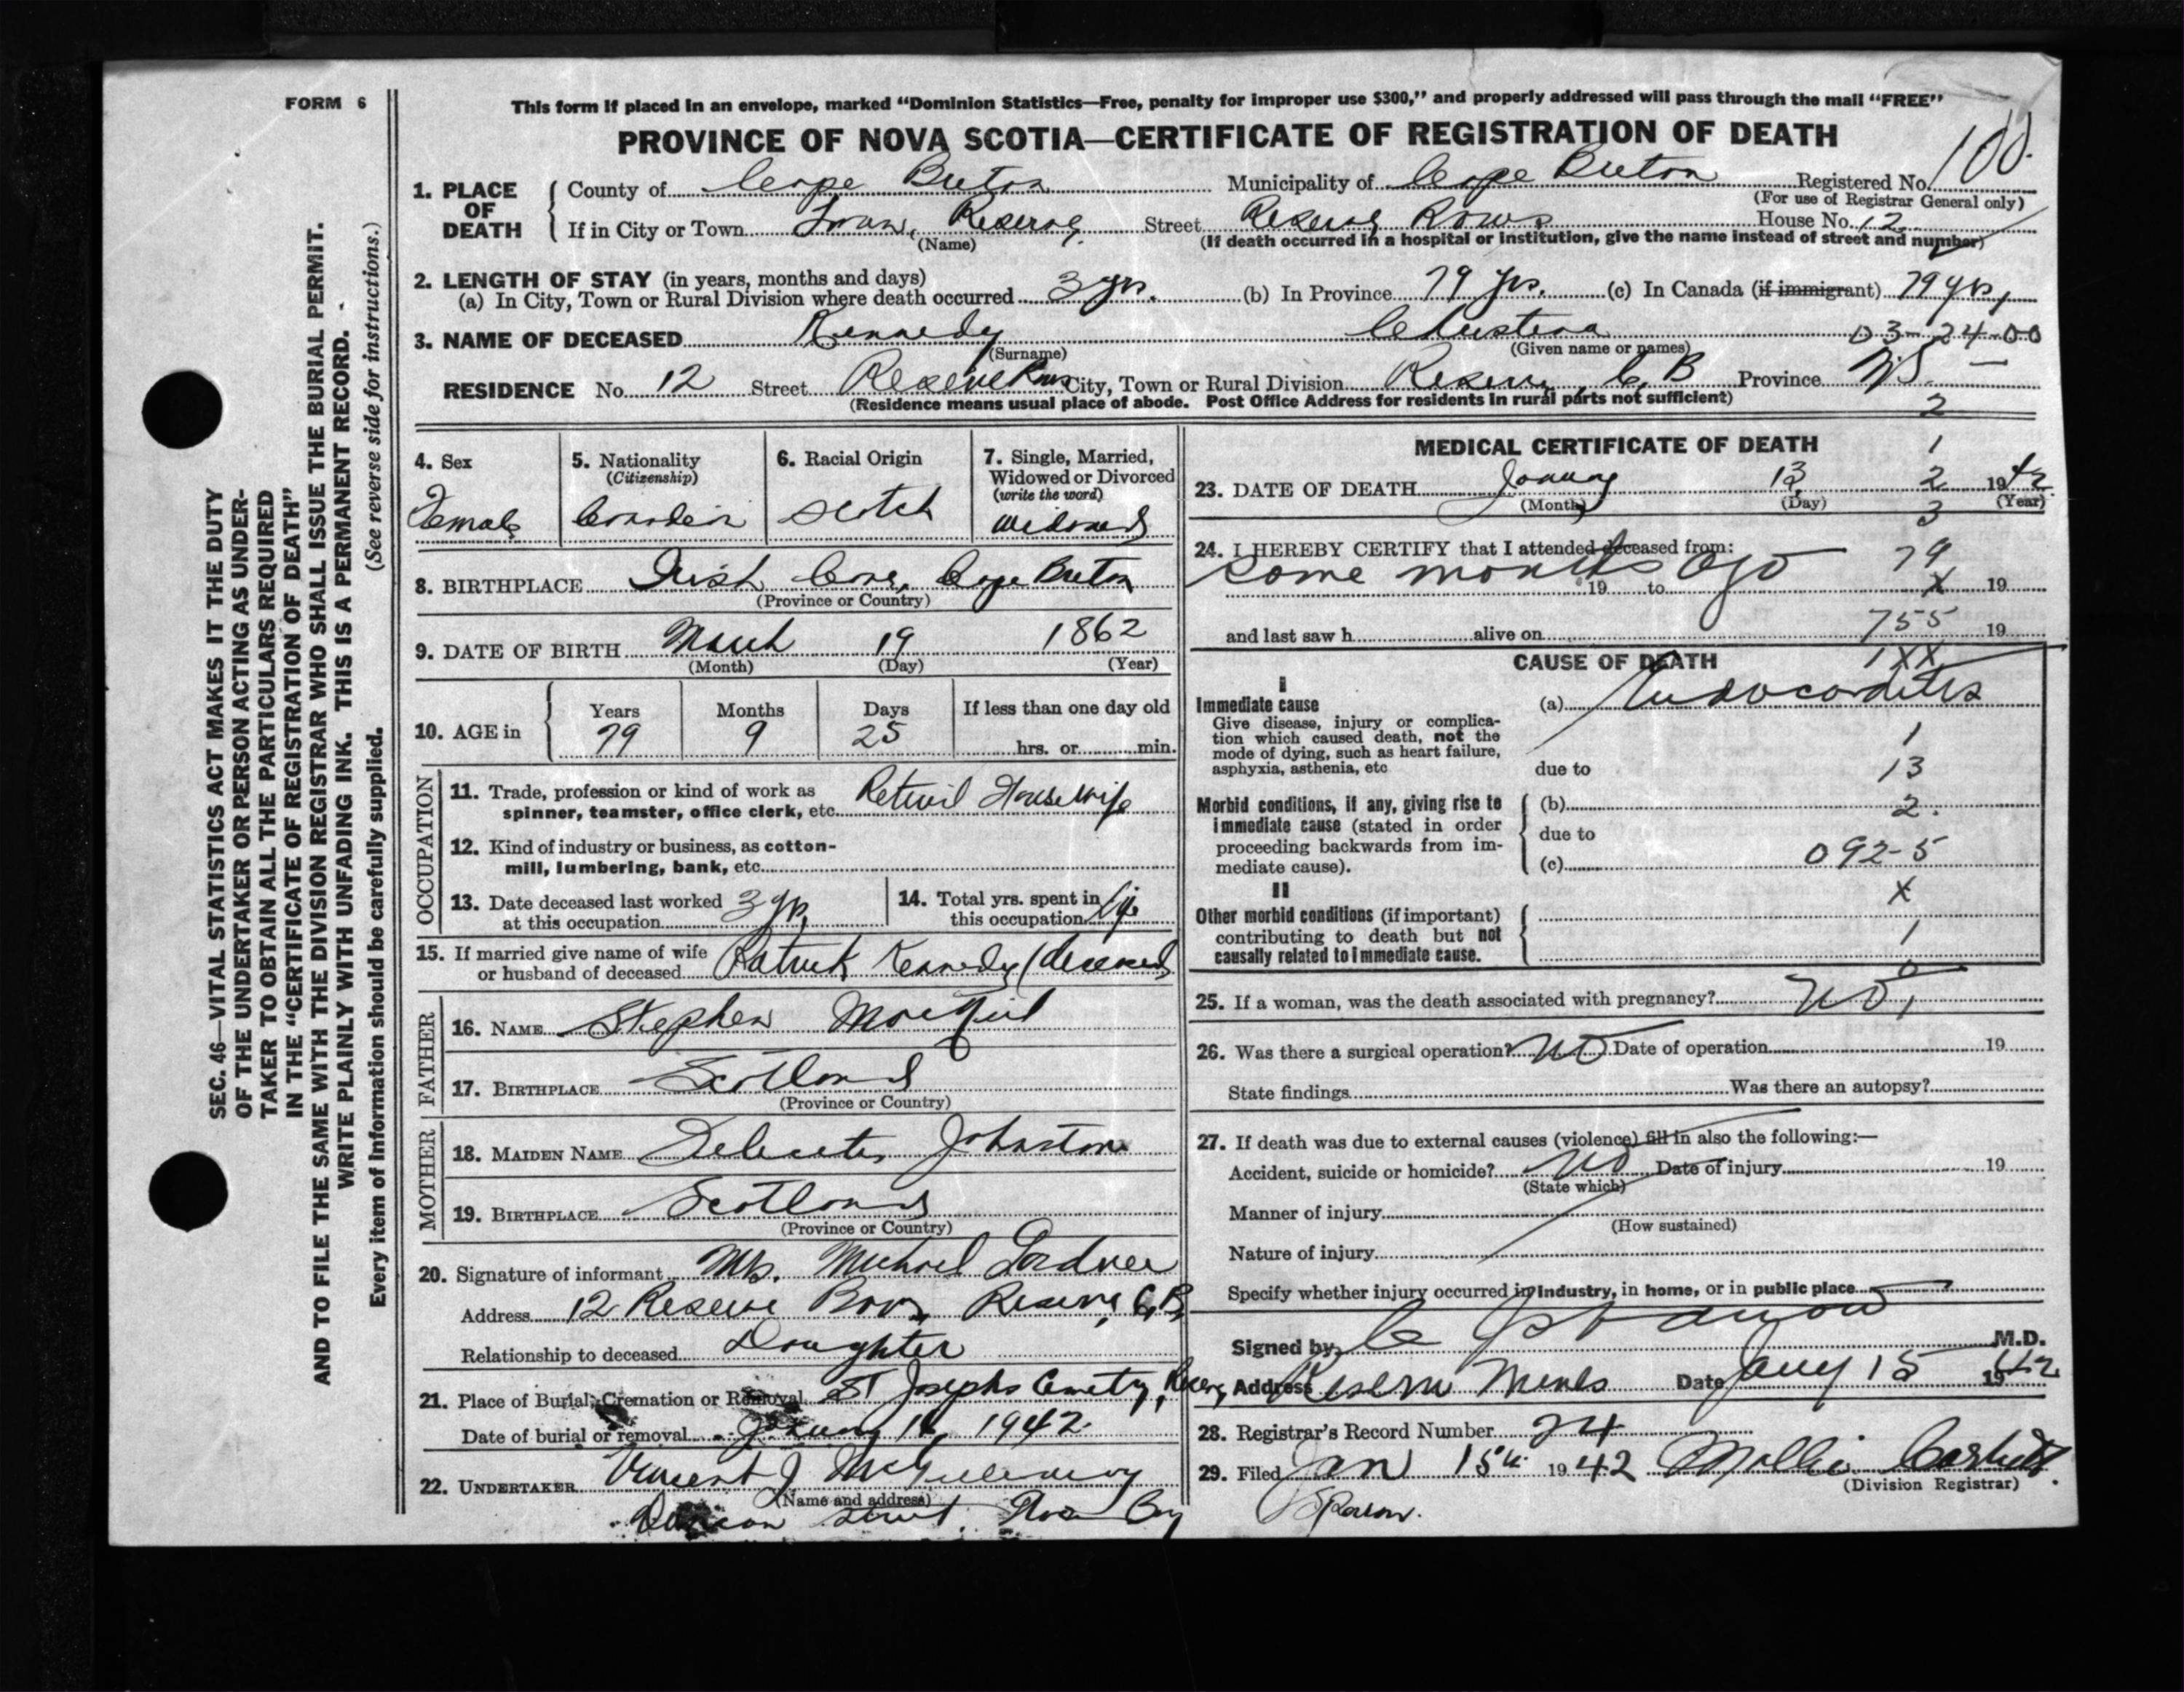 FORM 6
This form if placed in an envelope, marked “Dominion Statistics—Free, penalty for improper use $300,” and properly addressed will pass through the mail “FREE”
PROVINCE OF NOVA SCOTIA—CERTIFICATE OF REGISTRATION OF DEATH
100.
1. PLACE OF DEATH
County of Cape Breton Municipality of Cape Breton Registered No.
(For use of Registrar General only)
If in City or Town Town, Reserve Street Reserve Rows House No. 12
(Name) (If death occurred in a hospital or institution, give the name instead of street and number)
2. LENGTH OF STAY (in years, months and days)
(a) In City, Town or Rural Division where death occurred 3 yrs. (b) In Province 79 yrs. (c) In Canada (if immigrant) 79 yrs,
3. NAME OF DECEASED Kennedy Christena 03-24-00
(Surname) (Given name or names)
RESIDENCE No. 12 Street Reserve Rows City, Town or Rural Division Reserve, C. B Province N.S. —
(Residence means usual place of abode. Post Office Address for residents in rural parts not sufficient)
2
4. Sex
Female
5. Nationality
(Citizenship)
Canadian
6. Racial Origin
Scotch
7. Single, Married,
Widowed or Divorced
(write the word)
Widowed
8. BIRTHPLACE Irish Cove, Cape Breton
(Province or Country)
9. DATE OF BIRTH March 19 1862
(Month) (Day) (Year)
10. AGE in
Years Months Days If less than one day old
79 9 25 hrs. or min.
OCCUPATION
11. Trade, profession or kind of work as
spinner, teamster, office clerk, etc. Retired Housewife
12. Kind of industry or business, as cotton-
mill, lumbering, bank, etc.
13. Date deceased last worked
at this occupation 3 yrs,
14. Total yrs. spent in
this occupation life
15. If married give name of wife
or husband of deceased Patrick Kennedy (deceased
FATHER
16. NAME Stephen MacNeil
17. BIRTHPLACE Scotland
(Province or Country)
MOTHER
18. MAIDEN NAME Johnston
19. BIRTHPLACE Scotland
(Province or Country)
20. Signature of informant Mrs. Michael
Address 12 Reserve Rows, Reserve, C, B,
Relationship to deceased Daughter
21. Place of Burial, Cremation or Removal St Josephs Cemetry, Reserve
Date of burial or removal January 16, 1942
22. UNDERTAKER Vincent J McGillivray
(Name and address)
Street, Bay
MEDICAL CERTIFICATE OF DEATH
1
23. DATE OF DEATH January 13, 2 1942
(Month) (Day) (Year)
3
24. I HEREBY CERTIFY that I attended deceased from:
some months ago 79
19 to X 19
and last saw h alive on 755 19
CAUSE OF DEATH
1XX
I
Immediate cause
Give disease, injury or complica-
tion which caused death, not the
mode of dying, such as heart failure,
asphyxia, asthenia, etc
(a) Endocarditis
1
due to 13
Morbid conditions, if any, giving rise to
immediate cause (stated in order
proceeding backwards from im-
mediate cause).
(b) 2.
due to
(c) 092-5
II
X
Other morbid conditions (if important)
contributing to death but not
causally related to immediate cause.
1
0
25. If a woman, was the death associated with pregnancy? No,
26. Was there a surgical operation? No Date of operation 19
State findings Was there an autopsy?
27. If death was due to external causes (violence) fill in also the following:—
Accident, suicide or homicide? No Date of injury 19
(State which)
Manner of injury
(How sustained)
Nature of injury
Specify whether injury occurred in industry, in home, or in public place
Signed by M.D.
Address Reserve Mines Date Jany 15 1942
28. Registrar's Record Number 24
29. Filed Jan 15th 1942 Mollie
(Division Registrar)
SEC. 46—VITAL STATISTICS ACT MAKES IT THE DUTY
OF THE UNDERTAKER OR PERSON ACTING AS UNDER-
TAKER TO OBTAIN ALL THE PARTICULARS REQUIRED
IN THE “CERTIFICATE OF REGISTRATION OF DEATH”
AND TO FILE THE SAME WITH THE DIVISION REGISTRAR WHO SHALL ISSUE THE BURIAL PERMIT.
WRITE PLAINLY WITH UNFADING INK. THIS IS A PERMANENT RECORD.
Every item of information should be carefully supplied. (See reverse side for instructions.)